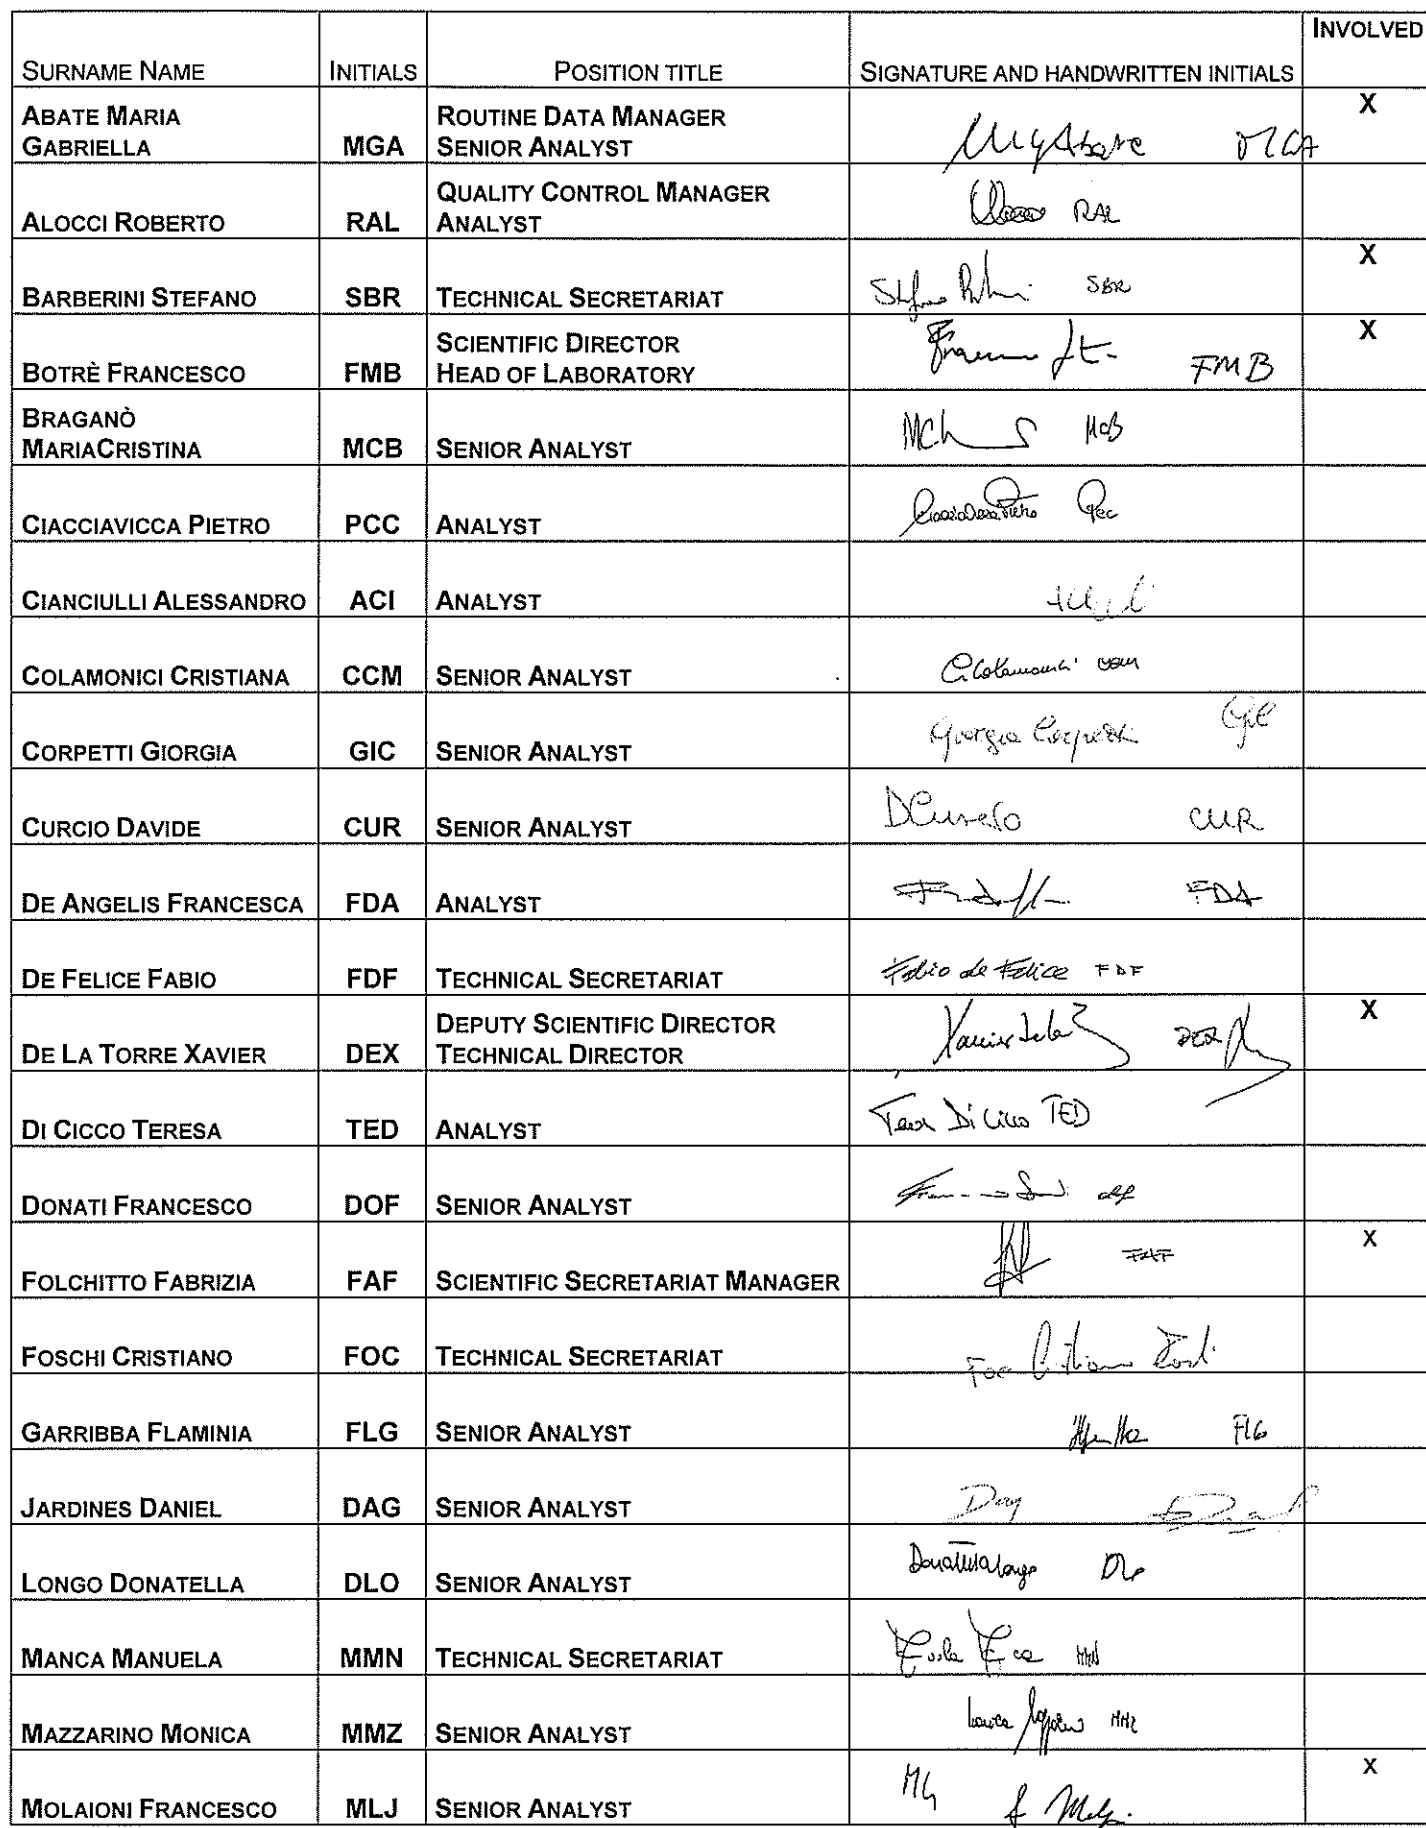 INVOLVED
SURNAME NAME INITIALS POSITION TITLE SIGNATURE AND HANDWRITTEN INITIALS
ABATE MARIA ROUTINE DATA MANAGER X
GABRIELLA MGA SENIOR ANALYST MGA
QUALITY CONTROL MANAGER
ALOCCI ROBERTO RAL ANALYST RAL
X
BARBERINI STEFANO SBR TECHNICAL SECRETARIAT SBR
SCIENTIFIC DIRECTOR X
BOTRÈ FRANCESCO FMB HEAD OF LABORATORY FMB
BRAGANÒ
MARIACRISTINA MCB SENIOR ANALYST MCB
CIACCIAVICCA PIETRO PCC ANALYST
CIANCIULLI ALESSANDRO ACI ANALYST
COLAMONICI CRISTIANA CCM SENIOR ANALYST C.Colamonici CCM
CORPETTI GIORGIA GIC SENIOR ANALYST Giorgia Corpetti GIC
CURCIO DAVIDE CUR SENIOR ANALYST DCurcio CUR
DE ANGELIS FRANCESCA FDA ANALYST FDA
DE FELICE FABIO FDF TECHNICAL SECRETARIAT Fabio de Felice FDF
DEPUTY SCIENTIFIC DIRECTOR X
DE LA TORRE XAVIER DEX TECHNICAL DIRECTOR DEX
DI CICCO TERESA TED ANALYST Teresa Di Cicco TED
DONATI FRANCESCO DOF SENIOR ANALYST
X
FOLCHITTO FABRIZIA FAF SCIENTIFIC SECRETARIAT MANAGER FAF
FOSCHI CRISTIANO FOC TECHNICAL SECRETARIAT FOC
GARRIBBA FLAMINIA FLG SENIOR ANALYST FLG
JARDINES DANIEL DAG SENIOR ANALYST Dag
LONGO DONATELLA DLO SENIOR ANALYST Donatella Longo DLO
MANCA MANUELA MMN TECHNICAL SECRETARIAT MMN
MAZZARINO MONICA MMZ SENIOR ANALYST MMZ
X
MOLAIONI FRANCESCO MLJ SENIOR ANALYST